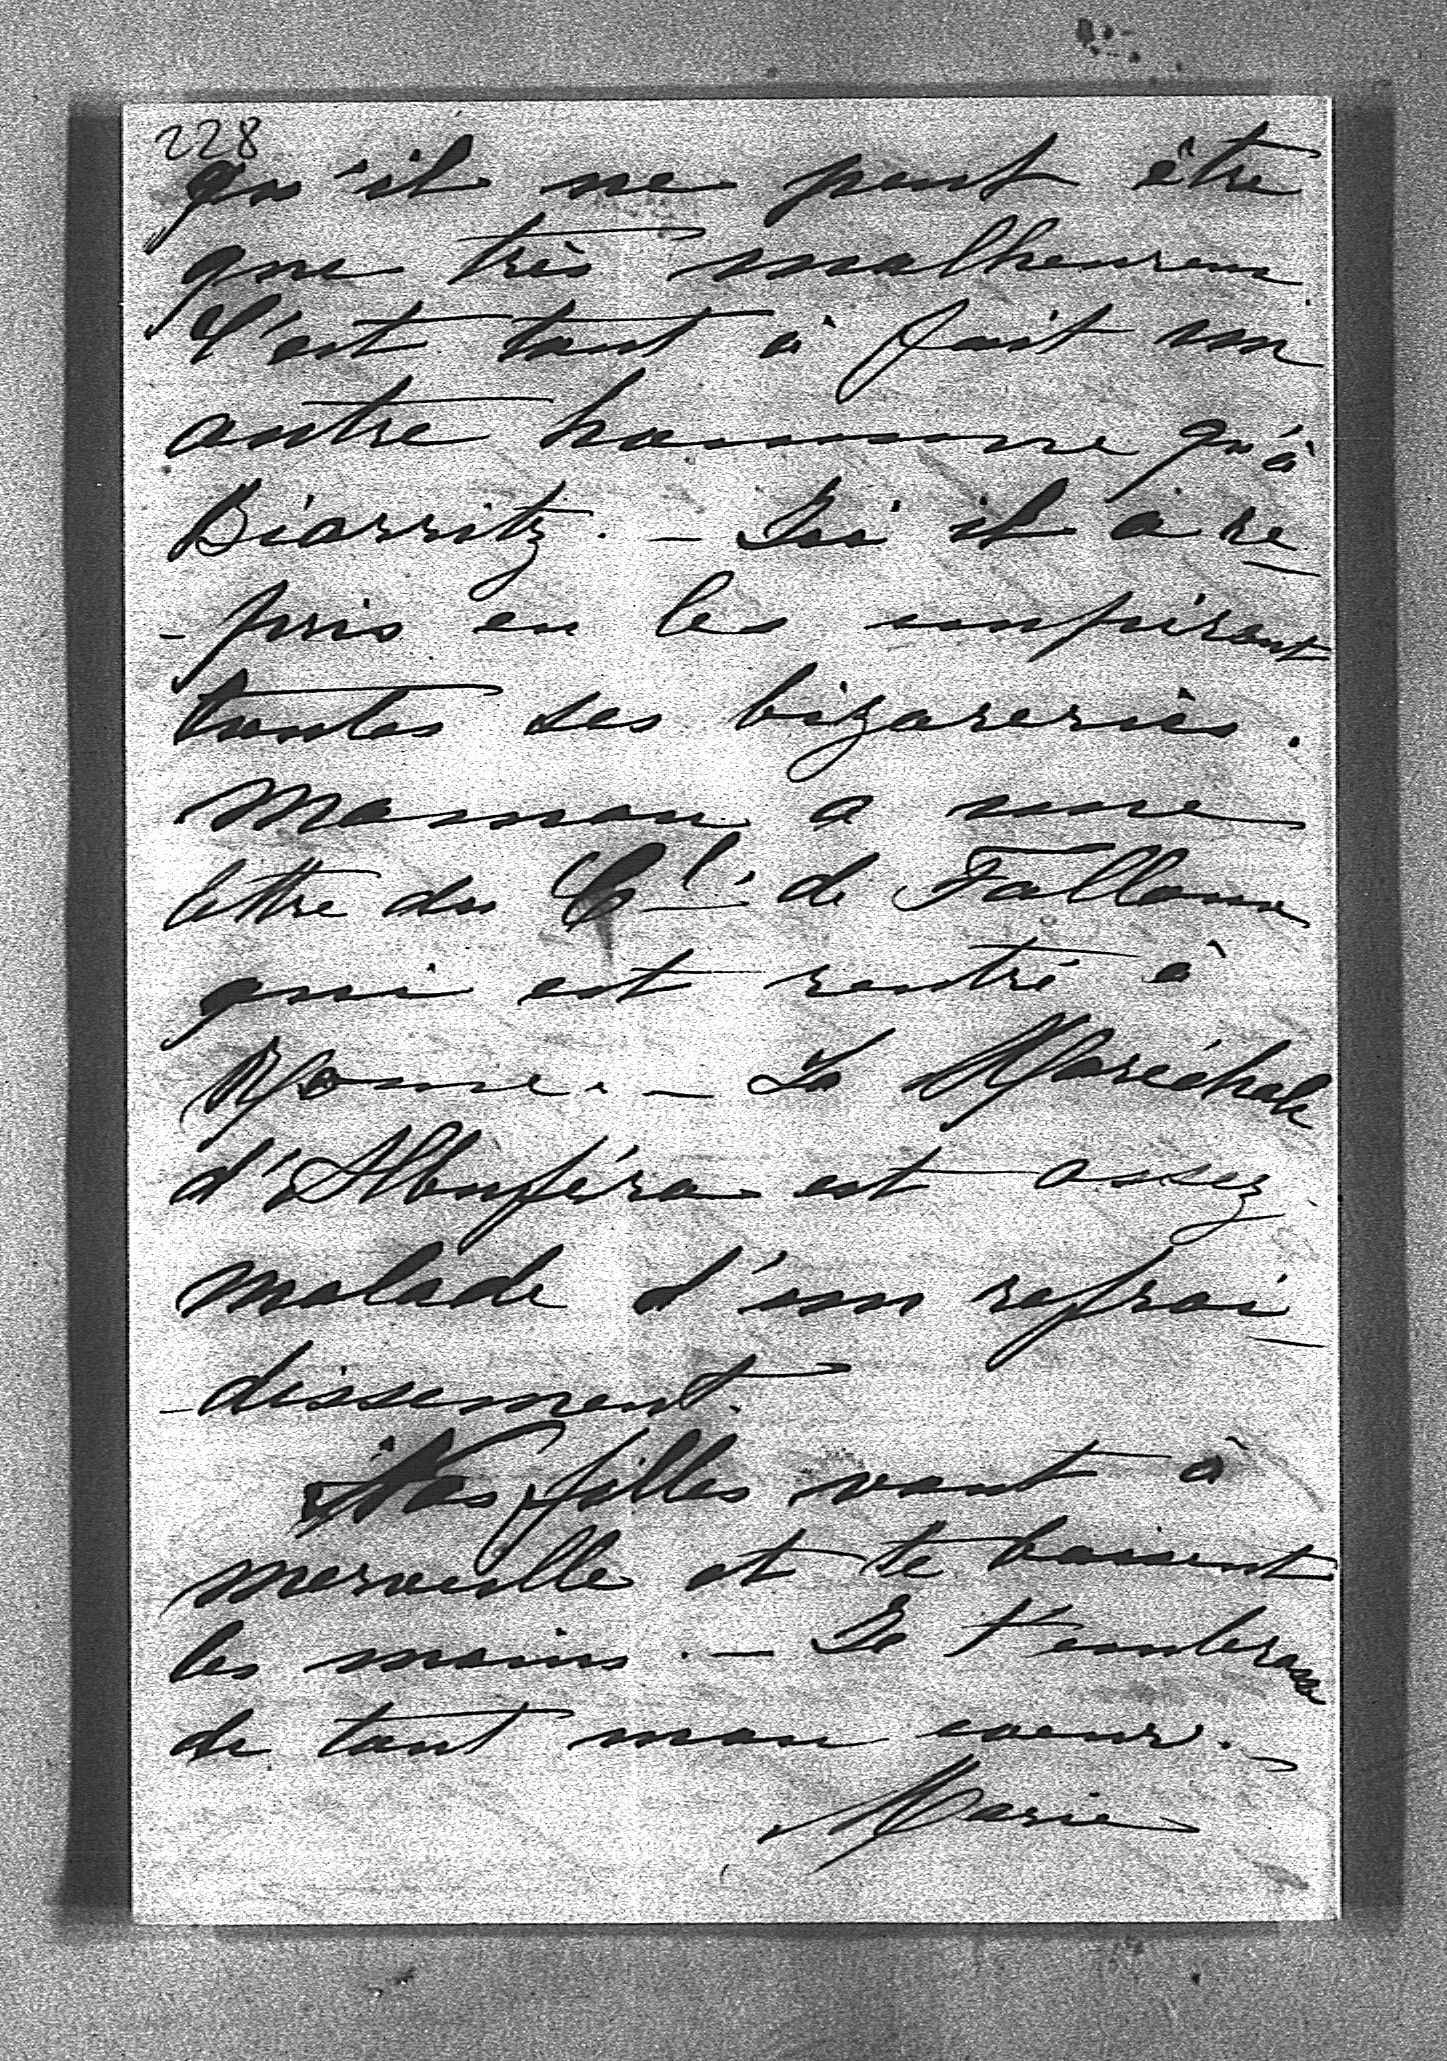 228
qu'il ne peut être
que très malheureux.
C'est tout à fait un
autre homme qu'à
Biarritz. – Ici il a re
- pris en les empirant
toutes ses bizareries.
Maman a une
lettre du Cte. de Falloux
qui est rentré à
Rome. – La Maréchale
d'Albuféra est assez
malade d'un refroi
- dissement.
Nos filles vont à
merveille et te baisent
les mains. – Je t'embrasse
de tout mon coeur. –
Marie